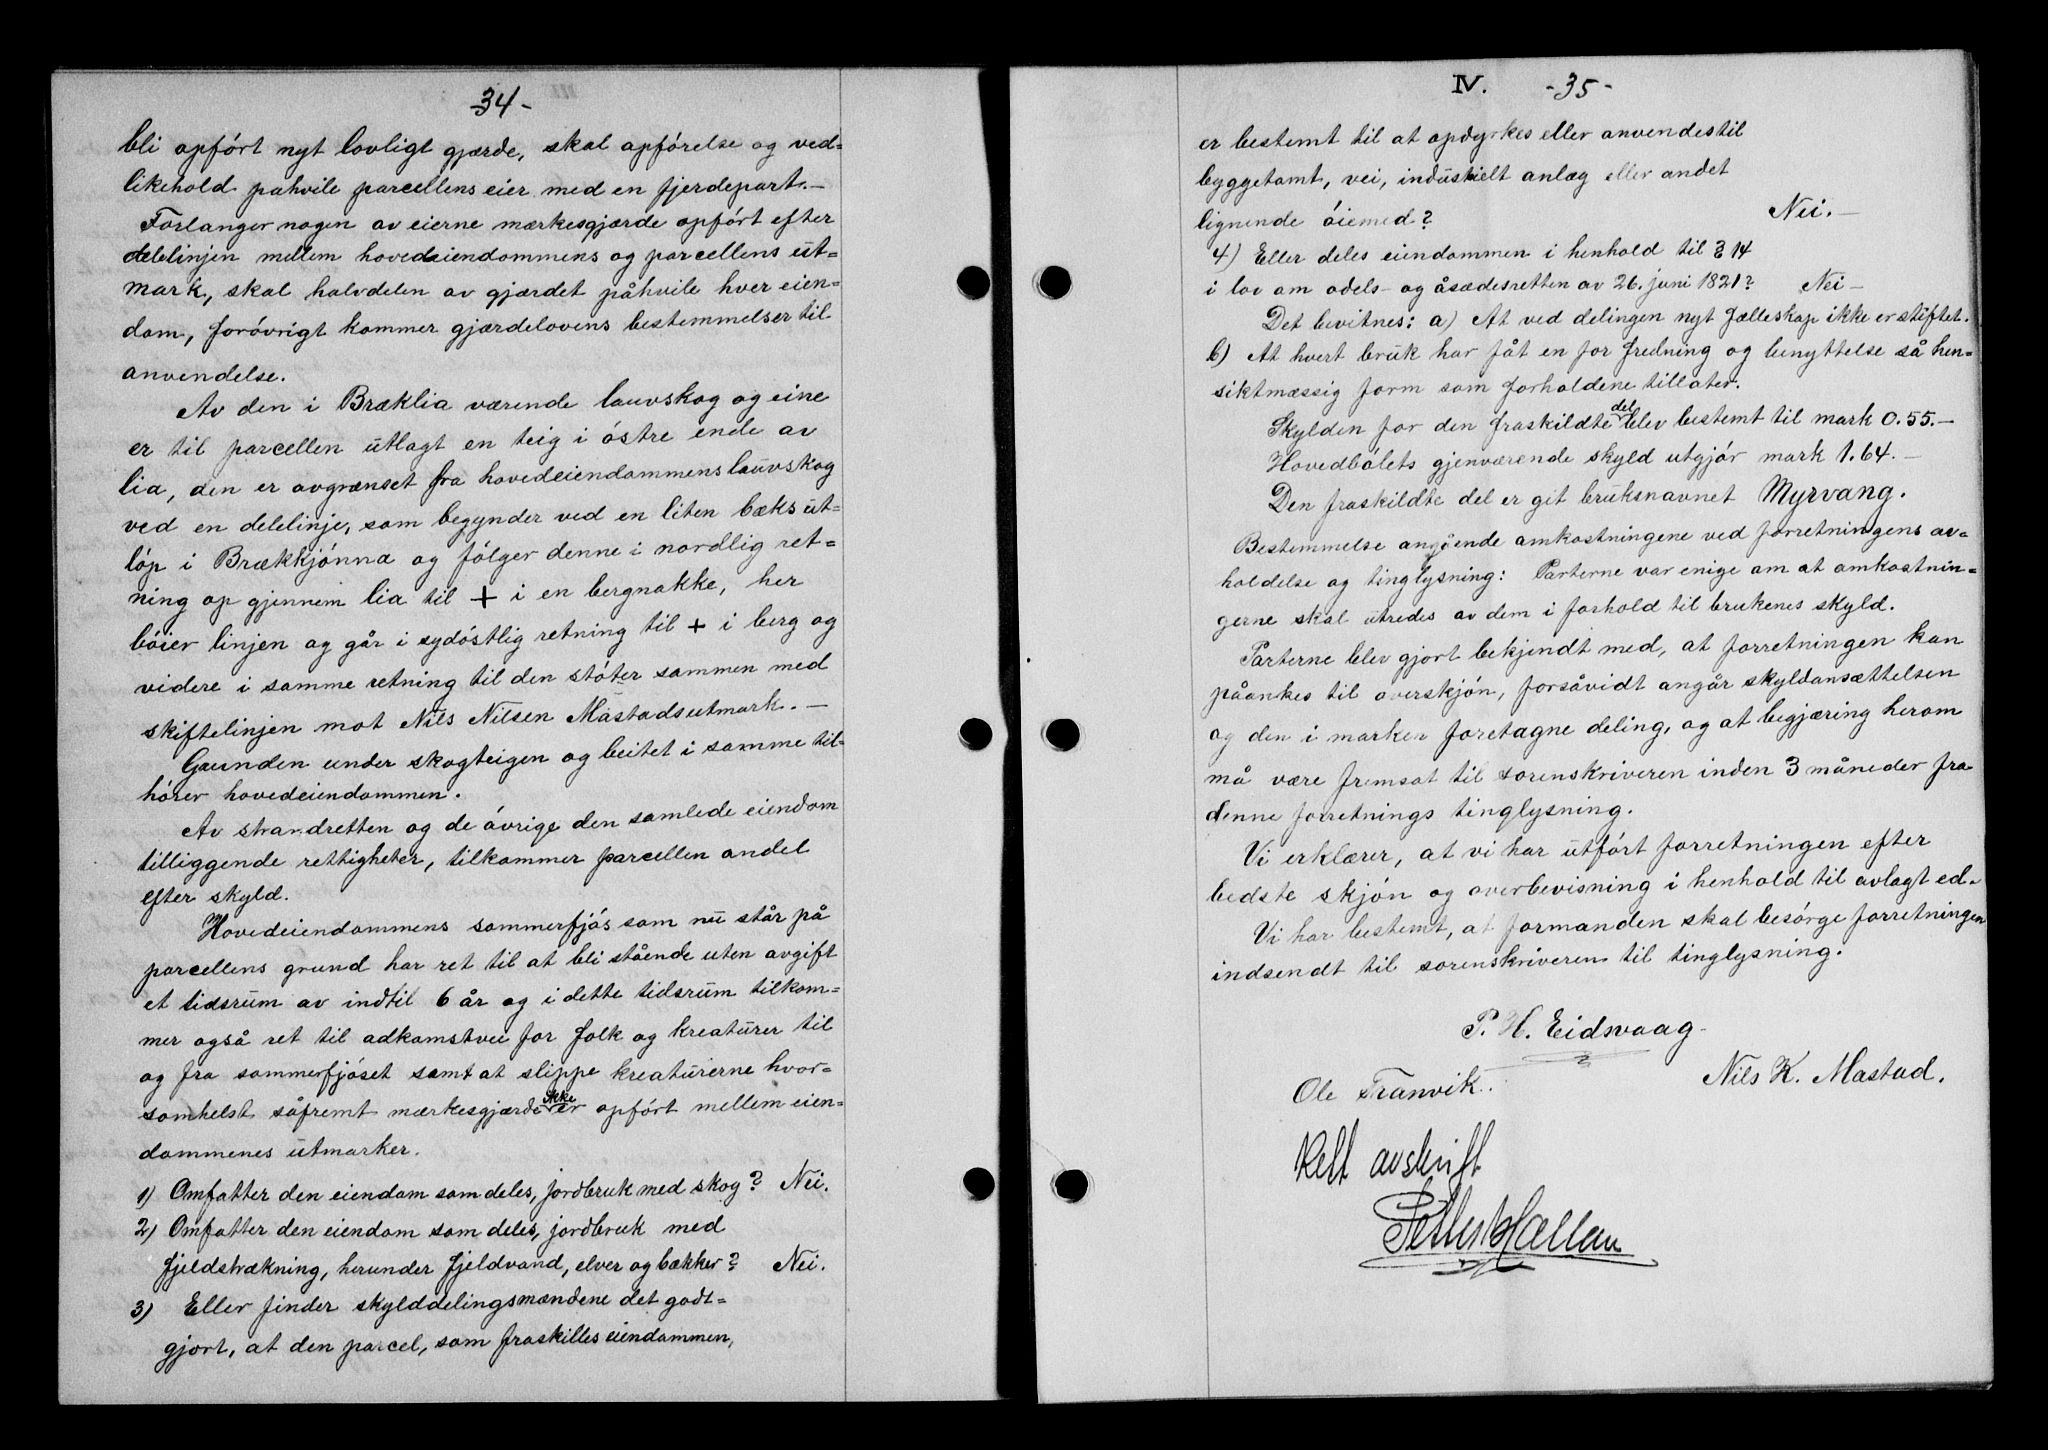 -34-
bli opfört nyt lovligt gjærde, skal opförelse og ved=
likehold pahvile parcellens eier med en fjerdepart.-
Forlanger nogen av eierne mærkesgjærde opfört efter
delelinjen mellem hovedeiendommens og parcellens ut=
mark, skal halvdelen av gjærdet påhvile hver eien=
dom, forövrigt kommer gjærdelovens bestemmelser til
anvendelse.
Av den i Bræklia værende lauvskog og eine
er til parcellen utlagt en teig i östre ende av
lia, den er avgrænset fra hovedeiendommens lauvskog
ved en delelinje, som begynder ved en liten bæks ut=
löp i Brækkjönna og fölger denne i nordlig ret=
ning op gjennem lia til + i en bergnakke, her
böier linjen og går i sydöstlig retning til + i berg og
videre i samme retning til den stöter sammen med
skiftelinjen mot Nils Nilsen Mastadsutmark. -
Grunden under skogteigen og beitet i samme til=
hörer hovedeiendommen.
Av strandretten og de övrige den samlede eiendom
tilliggende rettigheter, tilkommer parcellen andel
efter skyld.
Hovedeiendommens sommerfjös som nu står på
parcellens grund har ret til at bli stående uten avgift
et tidsrum av indtil 6 år og i dette tidsrum tilkom=
mer også ret til adkomstvei for folk og kreaturer til
og fra sommerfjöset samt at slippe kreaturerne hvor=
somhelst såfremt mærkesgjærde ikke er opfört mellem eien=
dommenes utmarker.
1) Omfatter den eiendom som deles, jordbruk med skog? Nei.
2) Omfatter den eiendom som deles, jordbruk med
fjeldstrækning, herunder fjeldvand, elver og bækker? Nei.
3) Eller finder skylddelingsmændene det godt=
gjort, at den parcel, som fraskilles eiendommen,
IV. -35-
er bestemt til at opdyrkes eller anvendes til
byggetomt, vei, industrielt anlæg eller andet
lignende öiemed? Nei. -
4) Eller deles eiendommen i henhold til § 14
i lov om odels- og åsædesretten av 26. juni 1821? Nei -
Det bevitnes: a) At ved delingen nyt fælleskap ikke er stiftet.
b) At hvert bruk har fåt en for fredning og benyttelse så hen=
siktmæssig form som forholdene tillater.
Skylden for den fraskildte del blev bestemt til mark 0.55.-
Hovedbölets gjenværende skyld utgjör mark 1.64. -
Den fraskildte del er git bruksnavnet Myrvang.
Bestemmelse angående omkostningene ved forretningens av=
holdelse og tinglysning: Parterne var enige om at omkostnin=
gerne skal utredes av dem i forhold til brukenes skyld.
Parterne blev gjort bekjendt med, at forretningen kan
påankes til overskjön, forsåvidt angår skyldansættelsen
og den i marken foretagne deling, og at begjæring herom
må være fremsat til sorenskriveren inden 3 måneder fra
denne forretnings tinglysning.
Vi erklærer, at vi har utfört forretningen efter
bedste skjön og overbevisning i henhold til avlagt ed.
Vi har bestemt, at formanden skal besörge forretningen
indsendt til sorenskriveren til tinglysning.
P. H. Eidsvaag
Nils K. Mastad.
Ole Tranvik.
Rett avskrift
Petter Hællan